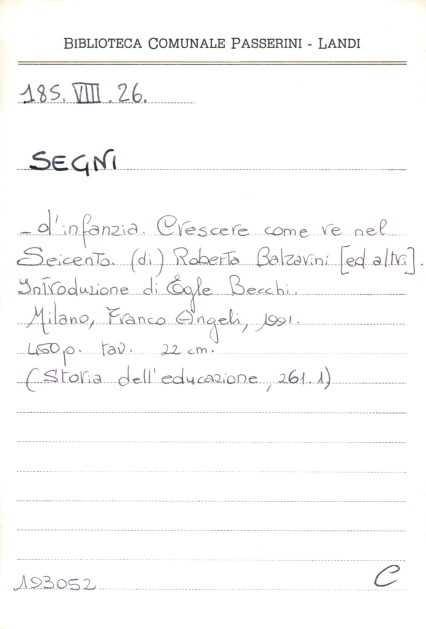 BIBLIOTECA COMUNALE PASSERINI - LANDI
185. VIII. 26.
SEGNI
- d'infanzia. Crescere come re nel
Seicento. (di) Roberta Balzarini [ed altri].
Introduzione di Egle Becchi.
Milano, Franco Angeli, 1991.
450p. tav. 22 cm.
(Storia dell'educazione, 261.1)
193052
C